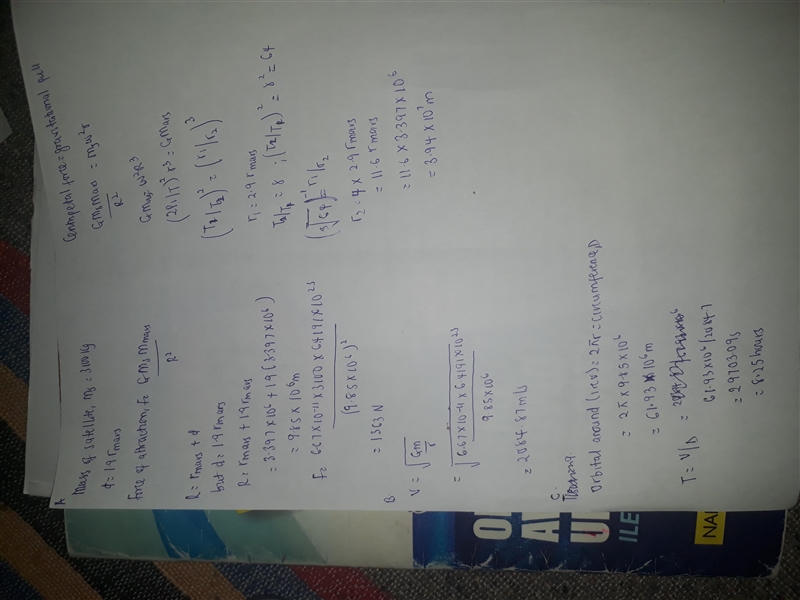 A
Mass of satellite, ms = 3100kg
d = 1.9 rmars
Force of attraction, F = G ms mmars
R²
R = rmars + d
but d = 1.9 rmars
R = rmars + 1.9 rmars
= 3.397 x 10⁶ + 1.9 (3.397 x 10⁶)
= 9.85 x 10⁶ m
F = 6.67 x 10⁻¹¹ x 3100 x 6.4191 x 10²³
(9.85 x 10⁶)²
= 1363 N
B
V = √Gm/r
= √6.67 x 10⁻¹¹ x 6.4191 x 10²³
9.85 x 10⁶
= 2084.87 m/s
C.
Orbital around (circ) = 2πr = circumference, D
= 2π x 9.85 x 10⁶
= 61.93 x 10⁶ m
T = V/D =
61.93 x 10⁶ / 2084.7
= 29703.09 s
= 8.25 hours
Centripetal force = gravitational pull
G ms mmars = ms ω² r
R²
G mmars = ω² R³
(2Pi/T)² r³ = G mars
(T1/T2)² = (r1/r2)³
r1 = 2.9 rmars
T2/T1 = 8 ; (T2/T1)² = 8² = 64
(³√64)⁻¹ = r1/r2
r2 = 4 x 2.9 rmars
= 11.6 rmars
= 11.6 x 3.397 x 10⁶
= 3.94 x 10⁷ m
O
A
U
ILE
NAI